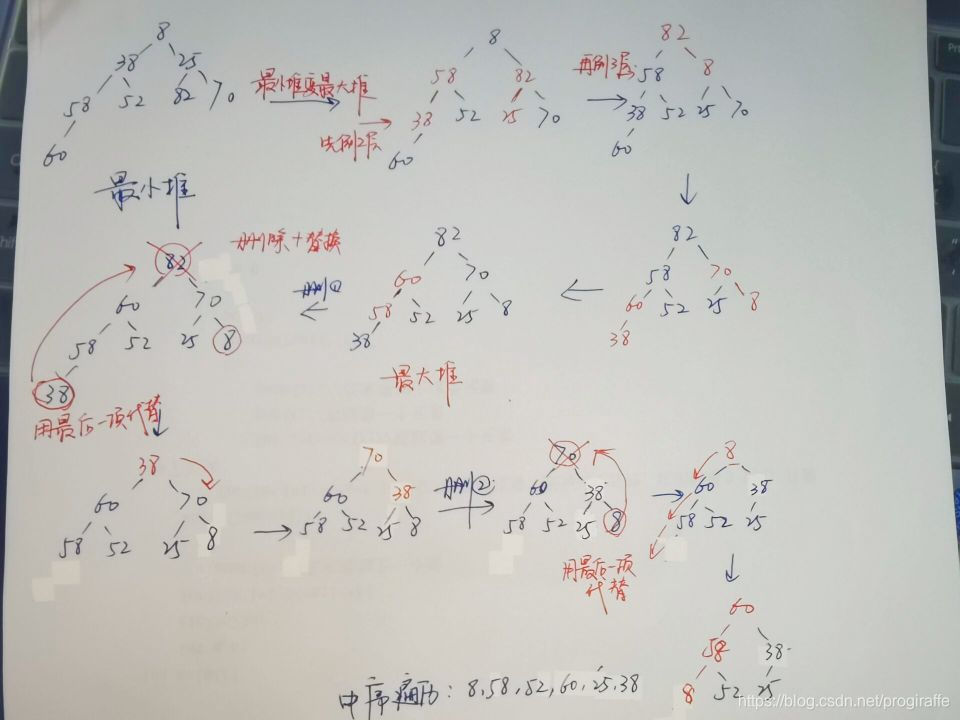 8
38 25
58 52 82 70
60
最小堆
最小堆变最大堆
先倒2层
8
58 82
38 52 25 70
60
再倒3层
82
58 8
38 52 25 70
60
82
58 70
60 52 25 8
38
82
60 70
58 52 25 8
38
最大堆
删①
删除+替换
82
60 70
58 52 25 8
38
用最后一项代替
38
60 70
58 52 25 8
70
60 38
58 52 25 8
删②
70
60 38
58 52 25 8
用最后一项
代替
8
60 38
58 52 25
60
58 38
8 52 25
中序遍历: 8,58,52,60,25,38
https://blog.csdn.net/progiraffe